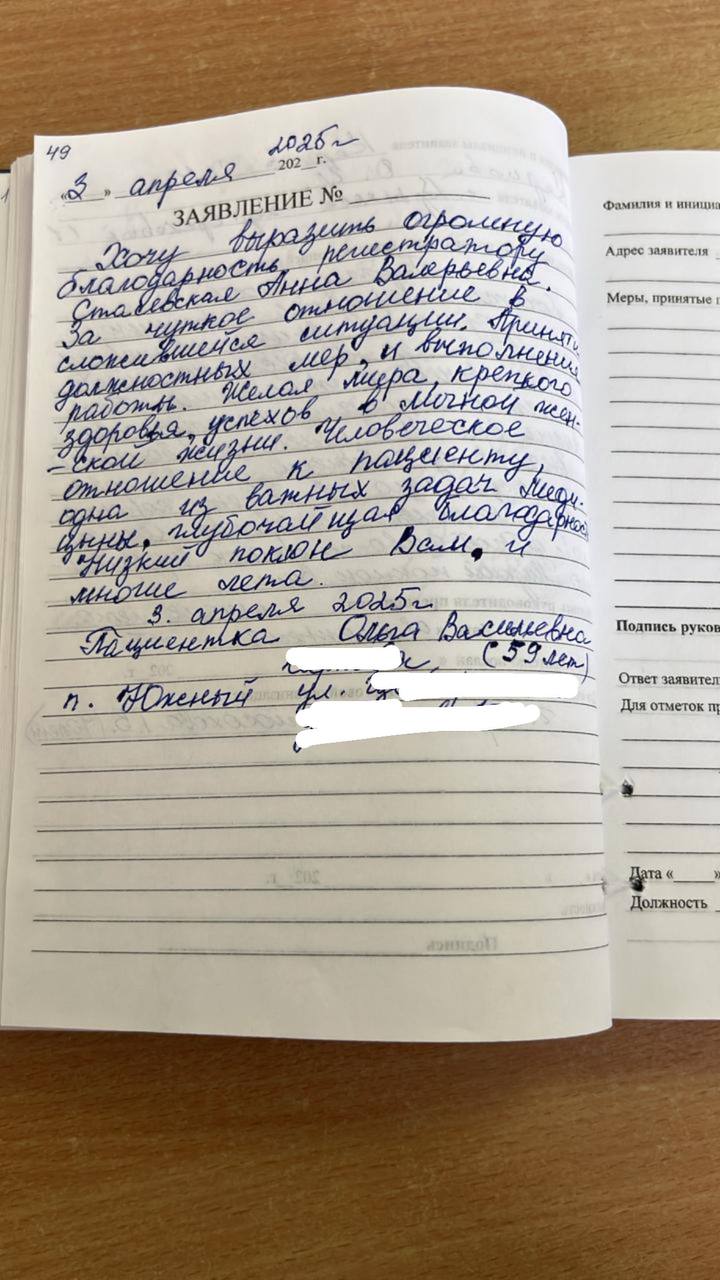 49
2025г
«3» апреля 202 г.
ЗАЯВЛЕНИЕ №
Хочу выразить огромную
благодарность регистратору
Стасевская Анна Валерьевна.
За чуткое отношение в
сложившейся ситуации. Приняти
должностных мер, и выполнения
работы. Желая мира, крепкого
здоровья, успехов в личной жен-
-ской жизни. Человеческое
отношение к пациенту,
одна из важных задач меди-
цины. глубочайшая благодарнос
Низкий поклон Вам, и
многие лета.
3. апреля 2025г.
Пациентка Ольга Васильевна
(59 лет)
п. Южный ул.
Фамилия и инициа
Адрес заявителя
Меры, принятые п
Подпись руков
Ответ заявител
Для отметок пр
Дата « »
Должность